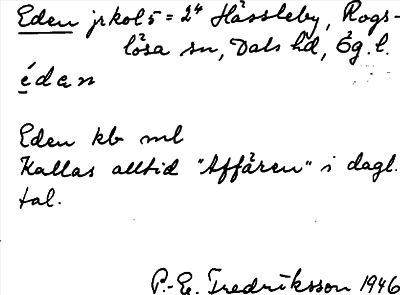 Eden jrkol5 = 2⁴ Hässleby, Rogs-
lösa sn, Dals hd, Ög. l.
édan
Eden kb ml
Kallas alltid "Affären" i dagl.
tal.
P.-E. Fredriksson 1946